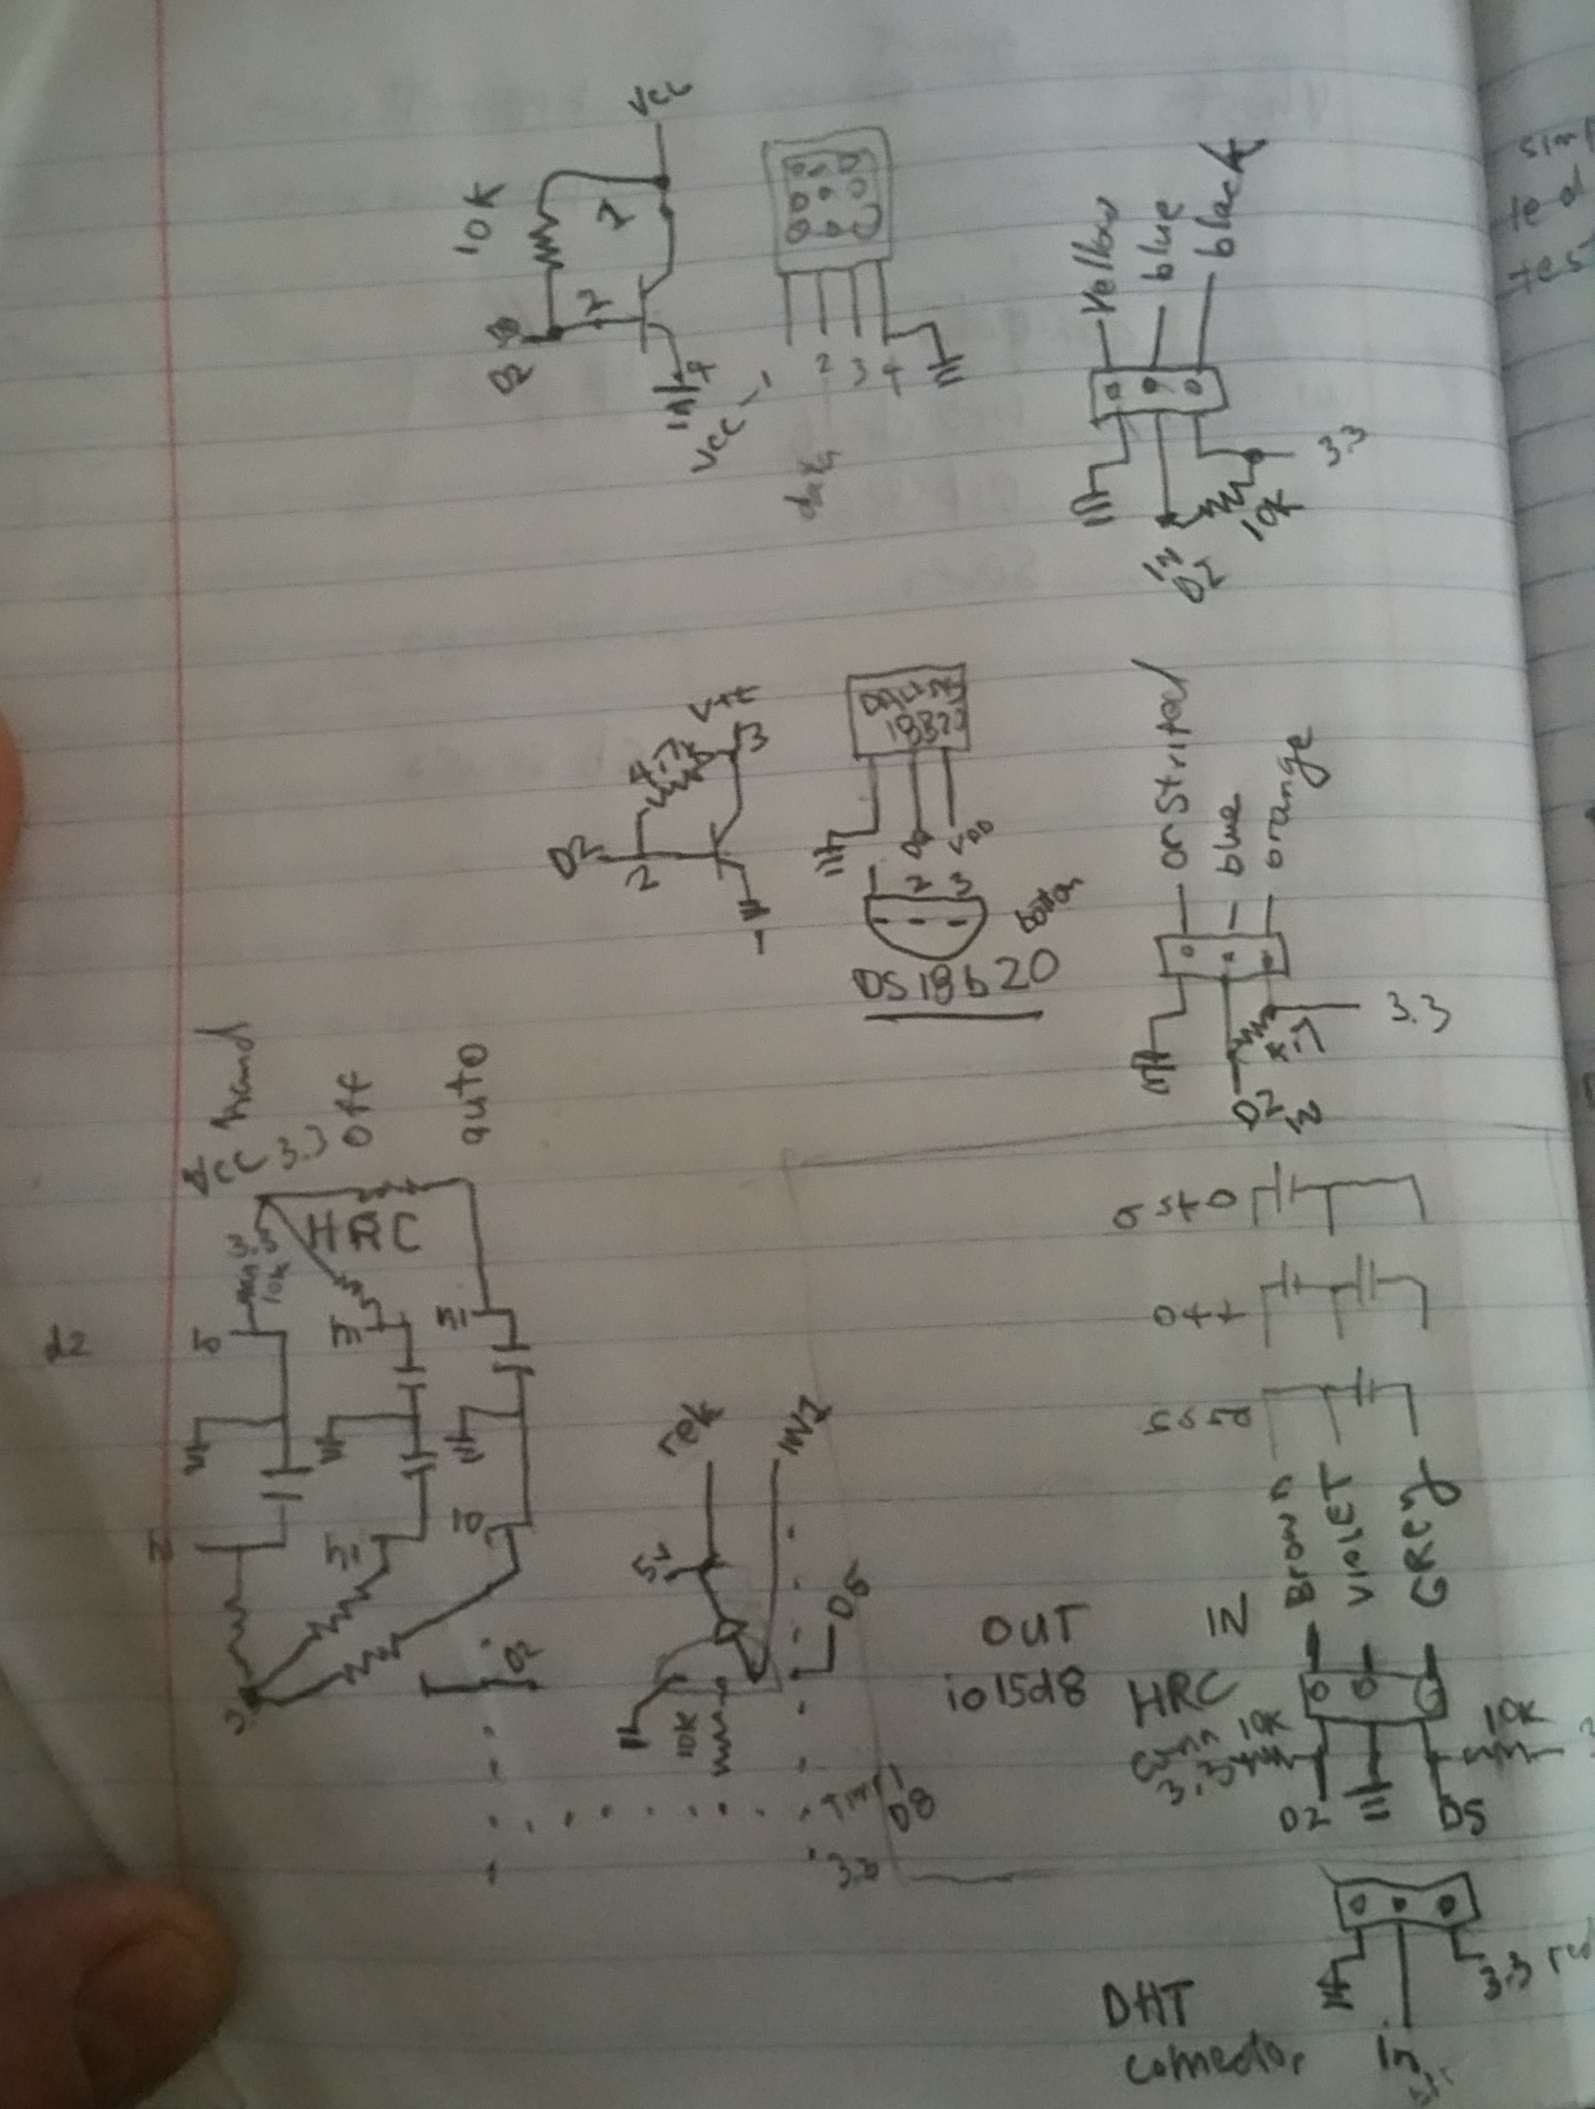 Vcc
10K
1
2
D2
4
Vcc 1
2
3
4
data
Yellow
blue
black
3.3
10K
IN
D2
4.7k
3
D2
2
Dallas
18B20
DQ
VDD
2 3
bottom
DS18b20
blue
orange
3.3
4.7
D2
IN
hand
off
auto
Vcc 3.3
HRC
3.3
10k
d2
D2
5v
IN1
10K
D5
D8
3.3
OUT
io15d8
IN
HRC
conn
10K
3.3
Brown
VIOLET
GREY
10K
D2
D5
DHT
connector
In
3.3 red